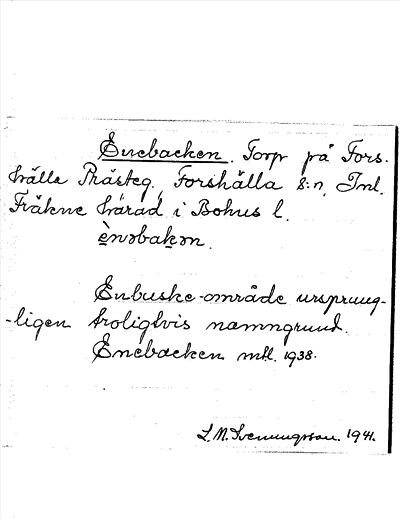 Enebacken. Torp på Fors-
hälla Prästeg., Forshälla s:n, Inl.
Fräkne härad i Bohus l.
ènəbakən.
Enbuske-område ursprung-
-ligen troligtvis namngrund.
Enebacken mtl. 1938.
L.M. Svenungsson. 1941.